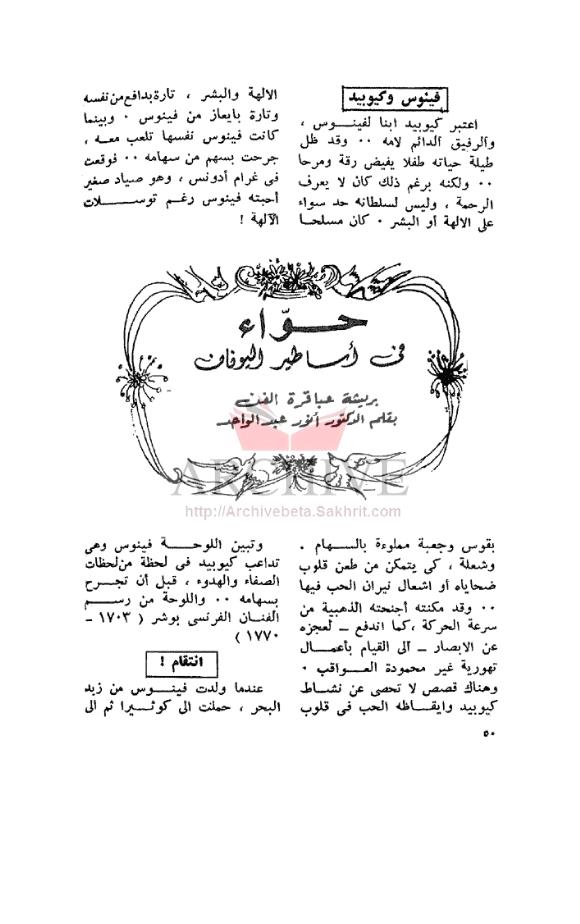 فينوس وكيوبيد
اعتبر كيوبيد ابنا لفينوس ،
والرفيق الدائم لامه ٠٠ وقد ظل
طيلة حياته طفلا يفيض رقة ومرحا
٠٠ ولكنه برغم ذلك كان لا يعرف
الرحمة ، وليس لسلطانه حد سواء
على الالهة أو البشر ٠ كان مسلحا
بقوس وجعبة مملوءة بالسهام .
وشعلة ، كى يتمكن من طعن قلوب
ضحاياه أو اشعال نيران الحب فيها
٠٠ وقد مكنته أجنحته الذهبية من
سرعة الحركة ، كما اندفع ــ لعجزه
عن الابصار ــ الى القيام بأعمال
تهورية غير محمودة العواقب ٠
وهناك قصص لا تحصى عن نشاط
كيوبيد وايقاظه الحب فى قلوب
الالهة والبشر ، تارة بدافع من نفسه
وتارة بايعاز من فينوس ٠ وبينما
كانت فينوس نفسها تلعب معه ،
جرحت بسهم من سهامه ٠٠ فوقعت
فى غرام أدونس ، وهو صياد صغير
أحبته فينوس رغم توسلات
الآلهة !
حواء
فى أساطير اليونان
بريشة عباقرة الفن
بقلم الدكتور أنور عبد الواحد
ARCHIVE
http://Archivebeta.Sakhrit.com
وتبين اللوحة فينوس وهى
تداعب كيوبيد فى لحظة من لحظات
الصفاء والهدوء ، قبل أن تجرح
بسهامه ٠٠ واللوحة من رسم
الفنان الفرنسى بوشر ( ١٧٠٣ -
١٧٧٠ )
انتقام !
عندما ولدت فينوس من زبد
البحر ، حملت الى كوثيرا ثم الى
٥٠